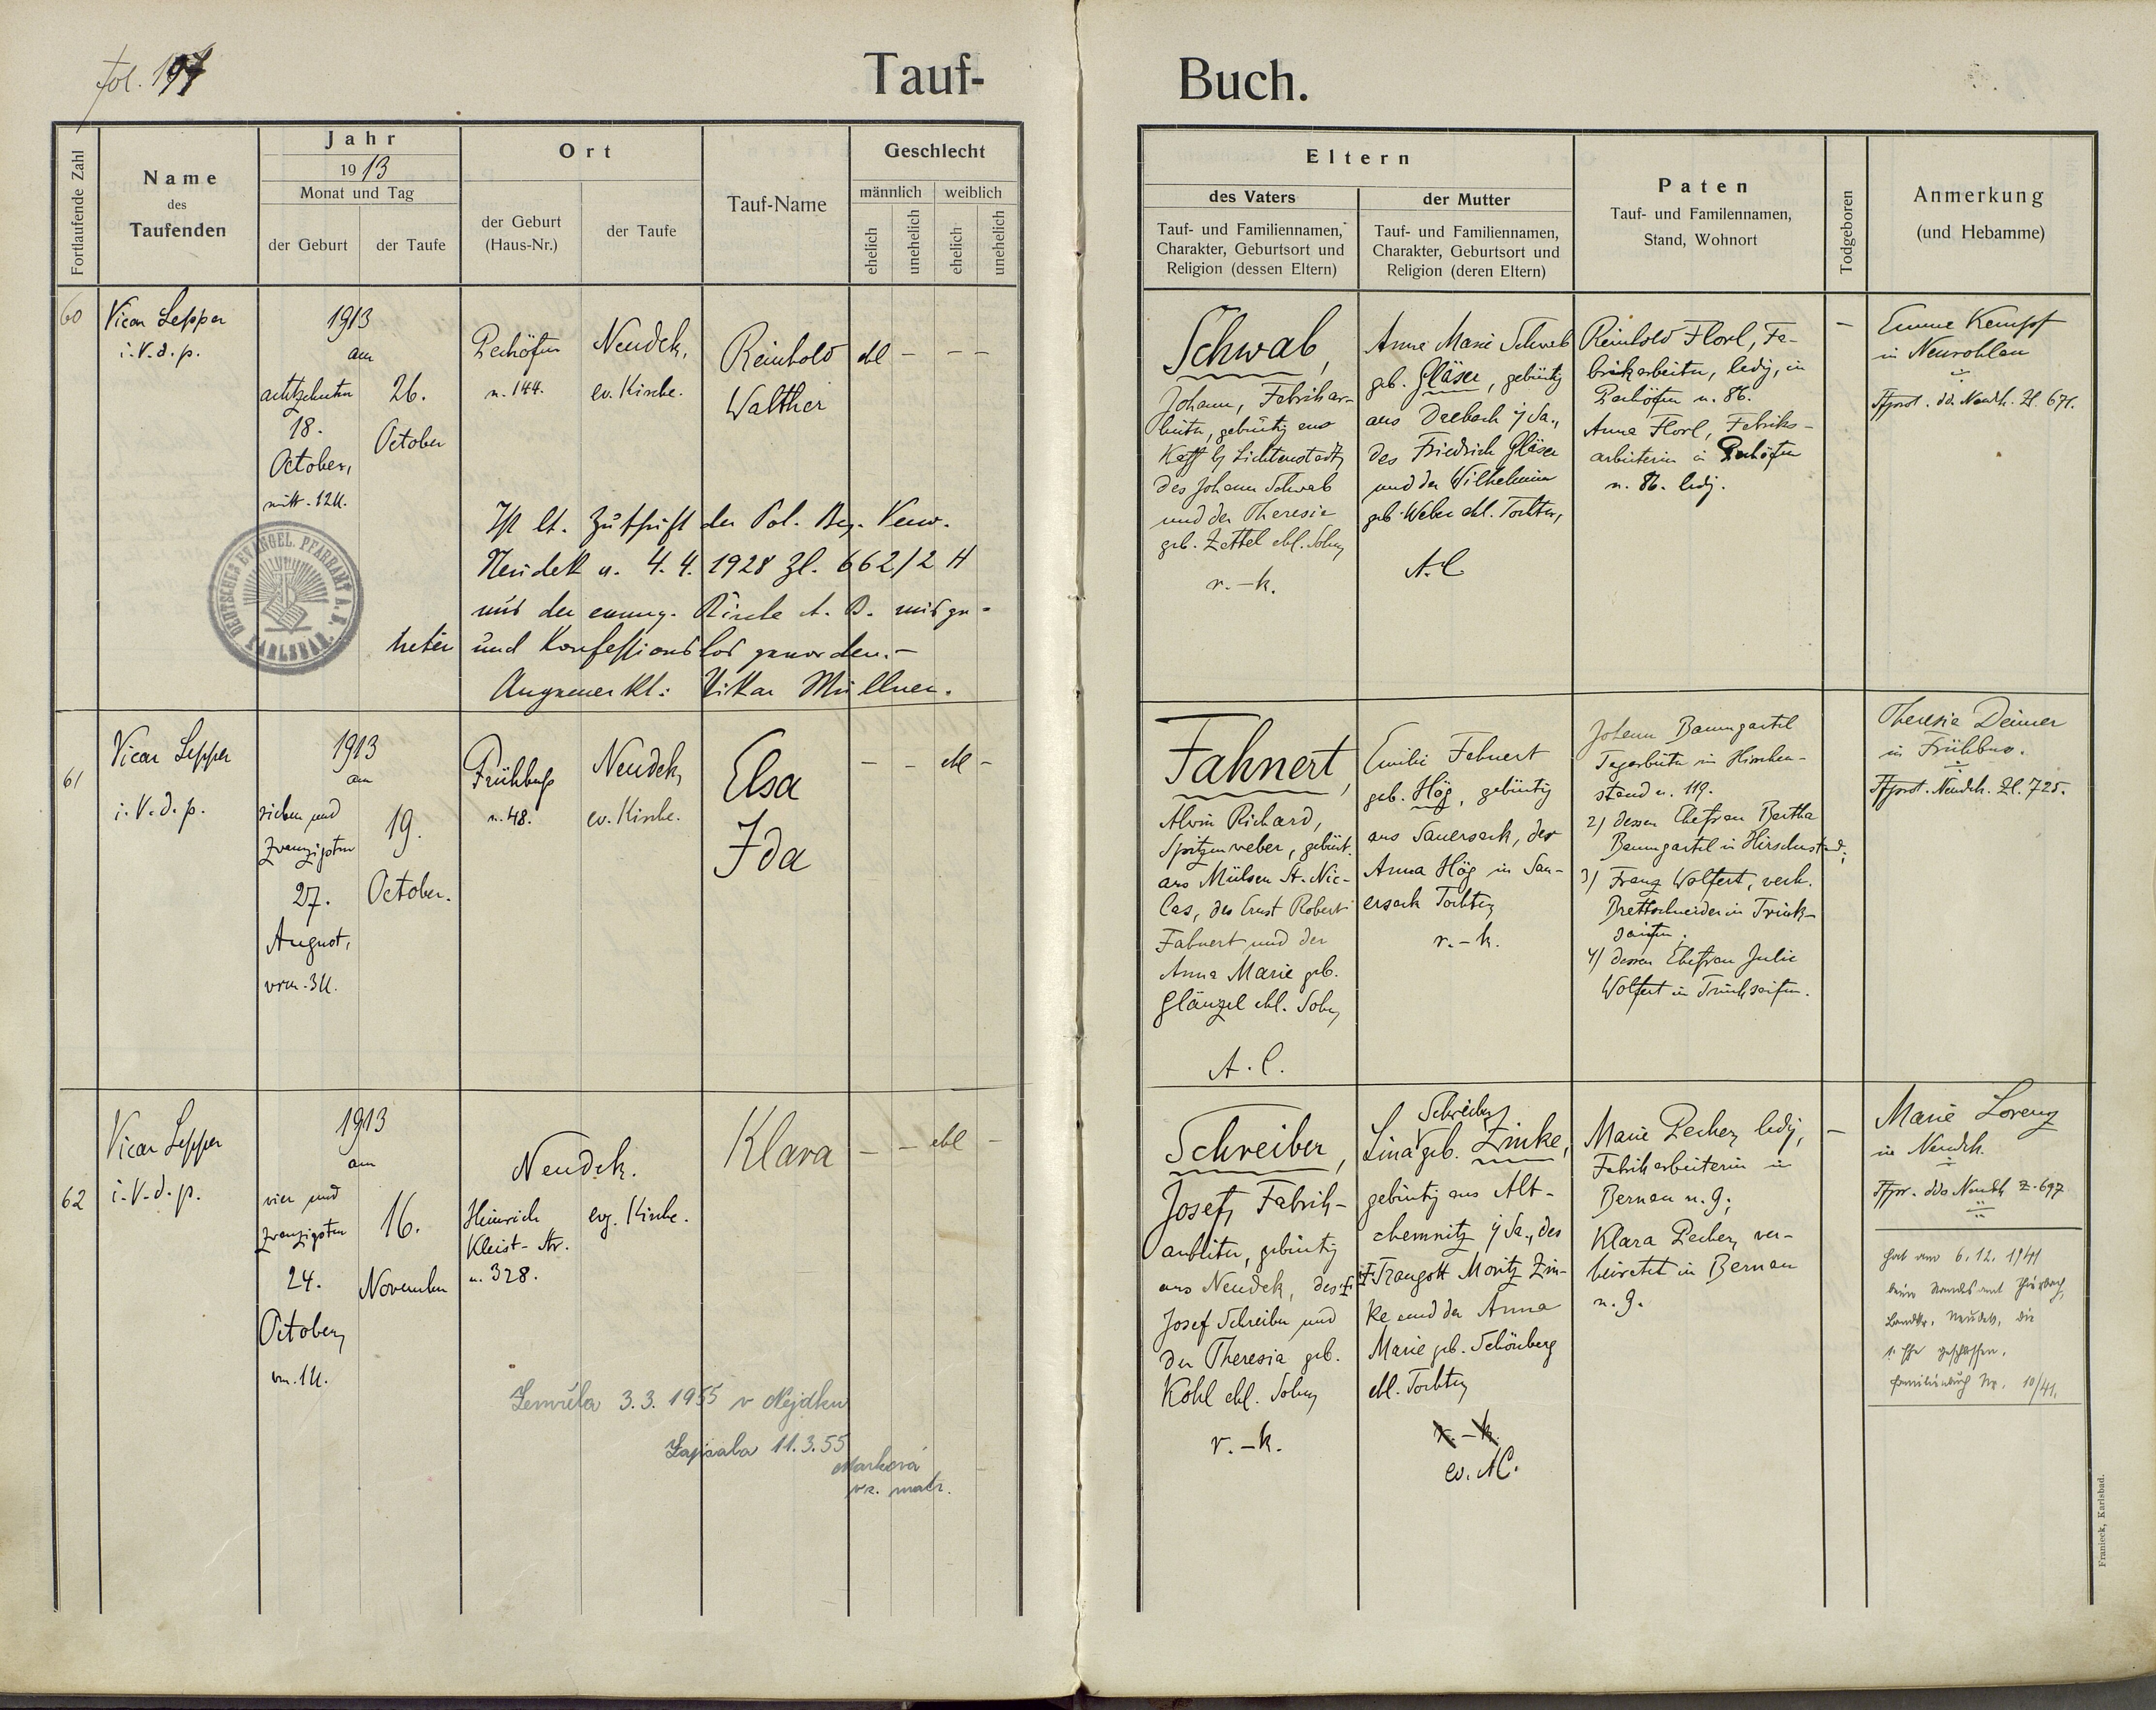 fol. 197
Tauf-
Buch.
Fortlaufende Zahl
Name
des
Taufenden
Jahr
1913
Monat und Tag
der Geburt
der Taufe
Ort
der Geburt
(Haus-Nr.)
der Taufe
Tauf-Name
Geschlecht
männlich
weiblich
ehelich
unehelich
ehelich
unehelich
Eltern
des Vaters
Tauf- und Familiennamen,
Charakter, Geburtsort und
Religion (dessen Eltern)
der Mutter
Tauf- und Familiennamen,
Charakter, Geburtsort und
Religion (deren Eltern)
Paten
Tauf- und Familennamen,
Stand, Wohnort
Todgeboren
Anmerkung
(und Hebamme)
60
Vicar Lepper
i. V. d. p.
1913
am
achtzehnten
18.
October,
mitt. 12 U.
26.
October
Pechöfen
n. 144.
Neudek,
ev. Kirche.
Reinhold
Walther
ehl - - -
Ist lt. Zuschrift der Pol. Bez. Verw.
Neudek v. 4. 4. 1928 Zl. 662/2 H
aus der evang. Kirche A. B. ausge-
treten und konfessionslos geworden. -
Angemerkt: Vikar Müllner.
DEUTSCHES EVANGEL. PFARRAMT A. B. KARLSBAD.
Schwab,
Johann, Fabrikar-
beiter, gebürtig aus
Kaff b/ Lichtenstadt,
des Johann Schwab
und der Theresie
geb. Zettel ehl. Sohn,
r.-k.
Anna Marie Schwab
geb. Gläser, gebürtig
aus Drebach i/ Sa.,
des Friedrich Gläser
und der Wilhelmine
geb. Weber ehl. Tochter,
A.C.
Reinhold Florl, Fa-
brikarbeiter, ledig, in
Pechöfen n. 86.
Anna Florl, Fabriks-
arbeiterin in Pechöfen
n. 86. ledig.
-
Emma Kempf
in Neurohlau
Pfprot. dd. Neudk. Zl. 671.
61
Vicar Lepper
i. V. d. p.
1913
am
sieben und
zwanzigsten
27.
August,
vrm. 3 U.
19.
October.
Frühbuß
n. 48.
Neudek,
ev. Kirche.
Elsa
Ida
- - ehl -
Fahnert,
Alwin Richard,
Spitzenweber, gebürt.
aus Mülsen St. Nic-
las, des Ernst Robert
Fahnert und der
Anna Marie geb.
Glänzel ehl. Sohn,
A.C.
Emilie Fahnert
geb. Hög, gebürtig
aus Sauersack, der
Anna Hög in Sau-
ersack Tochter,
r.-k.
Johann Baumgartl
Tagarbeiter in Hirschen-
stand n. 119.
2) dessen Ehefrau Bertha
Baumgartl in Hirschenstand;
3) Franz Wolfert, verh.
Brettschneider in Trink-
saifen.
4) dessen Ehefrau Julie
Wolfert in Trinkseifen.
Theresia Deimer
in Frühbus.
Pfprot. Neudek. Zl. 725.
62
Vicar Lepper
i. V. d. p.
1913
am
vier und
zwanzigsten
24.
October,
vm. 1 U.
16.
November
Neudek.
Heinrich
Kleist-Str.
n. 328.
evg. Kirche.
Klara
- - ehl -
Zemřela 3.3. 1955 v Nejdku
Zapsala 11.3.55
Marková
ved. matr.
Schreiber,
Josef, Fabrik-
arbeiter, gebürtig
aus Neudek, des †
Josef Schreiber und
der Theresia geb.
Kohl ehl. Sohn,
r.-k.
Schreiber,
Lina geb. Zinke,
gebürtig aus Alt-
chemnitz i/ Sa., des
† Traugott Moritz Zin-
ke und der Anna
Marie geb. Schönberg
ehl. Tochter,
r.-k.
ev. AC.
Marie Pecher, ledig,
Fabrikarbeiterin in
Bernau n. 9;
Klara Pecher, ver-
heiratet in Bernau
n. 9.
-
Marie Lorenz
in Neudek.
Pfpr. ddo Neudk Z. 697
Hat am 6. 12. 1941
beim Standesamt
Landkr. Neudek, die
1. Ehe geschlossen.
Familienbuch Nr. 10/41.
Franieck, Karlsbad.